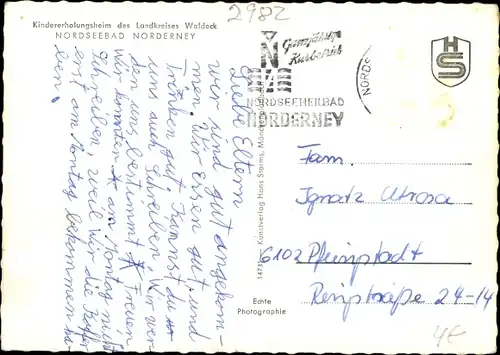 2982
Kindererholungsheim des Landkreises Waldeck
NORDSEEBAD NORDERNEY
Liebe Eltern
wir sind gut angekom-
men. Wir essen gut und
Trinken gut. Kannst du
uns auch schreiben. Wir wer-
den uns bestimmt Freuen
wir konnten am Montag nicht
schreiben, weil wir die Koffer
erst am Montag bekommen ha-
ben.
Ganzjährige
Kurbetrieb
N
NORDSEEHEILBAD
NORDERNEY
NORDS
HS
Kunstverlag Hans Storms, Mönchengladbach
Echte
Photographie
Fam.
Ignatz
6102 Pfungstadt
24-14
4€